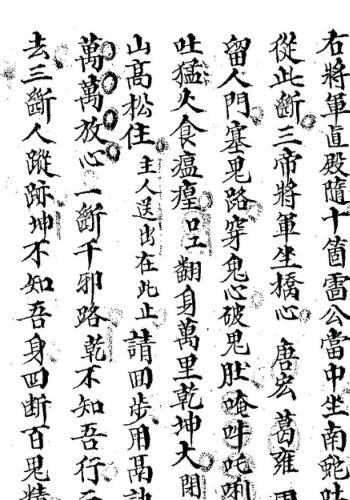 右將軍直殿隨十箇雷公當中坐南蛇吐
從此斷三帝將軍坐橋心 唐宏葛雍周
留人門塞鬼路穿鬼心破鬼肚唵吽吒唎
吐猛火食瘟㾮 翻身萬里乾坤大閉
山高松住 主人送出在此止 請回步用高訣
萬萬放心 一斷千邪路乾不知吾行二
去三斷人蹤跡坤不知吾身四斷百鬼精